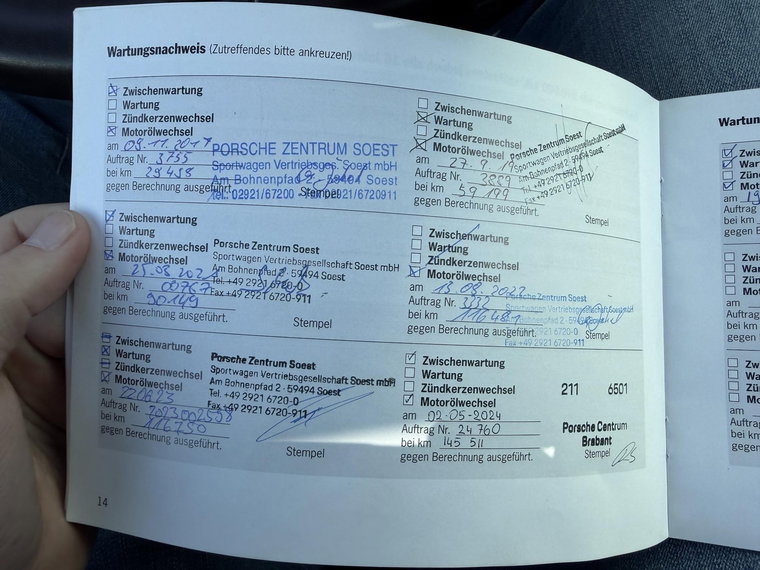 Wartungsnachweis (Zutreffendes bitte ankreuzen!)
Zwischenwartung
Wartung
Zündkerzenwechsel
Motorölwechsel
am 09.11.2017
Auftrag Nr. 3755
bei km 29458
gegen Berechnung ausgeführt.
PORSCHE ZENTRUM SOEST
Sportwagen Vertriebsges. Soest mbH
Am Bohnenpfad 2 · 59494 Soest
Tel. 02921/67200 · Telefax 02921/6720911
Stempel
Zwischenwartung
Wartung
Zündkerzenwechsel
Motorölwechsel
am
Auftrag Nr. 3889
bei km 59199
gegen Berechnung ausgeführt.
Porsche Zentrum Soest
Sportwagen Vertriebsgesellschaft Soest mbH
Am Bohnenpfad 2 · 59494 Soest
Tel. +49 2921 6720-0
Fax +49 2921 6720-911
Stempel
Zwischenwartung
Wartung
Zündkerzenwechsel
Motorölwechsel
am
Auftrag Nr. 00767
bei km 90149
gegen Berechnung ausgeführt.
Porsche Zentrum Soest
Sportwagen Vertriebsgesellschaft Soest mbH
Am Bohnenpfad 2 · 59494 Soest
Tel. +49 2921 6720-0
Fax +49 2921 6720-911
Stempel
Zwischenwartung
Wartung
Zündkerzenwechsel
Motorölwechsel
am
Auftrag Nr. 3132
bei km
gegen Berechnung ausgeführt.
Porsche Zentrum Soest
Sportwagen Vertriebsgesellschaft Soest mbH
Am Bohnenpfad 2 · 59494 Soest
Tel. +49 2921 6720-0
Fax +49 2921 6720-911
Stempel
Zwischenwartung
Wartung
Zündkerzenwechsel
Motorölwechsel
am
Auftrag Nr.
bei km 116750
gegen Berechnung ausgeführt.
Porsche Zentrum Soest
Sportwagen Vertriebsgesellschaft Soest mbH
Am Bohnenpfad 2 · 59494 Soest
Tel. +49 2921 6720-0
Fax +49 2921 6720-911
Stempel
Zwischenwartung
Wartung
Zündkerzenwechsel
Motorölwechsel
am 02-05-2024
Auftrag Nr. 24760
bei km 145 511
gegen Berechnung ausgeführt.
211 6501
Porsche Centrum
Brabant
Stempel
14